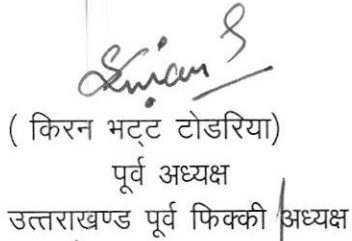 ( किरन भट्ट टोडरिया)
पूर्व अध्यक्ष
उत्तराखण्ड पूर्व फिक्की अध्यक्ष